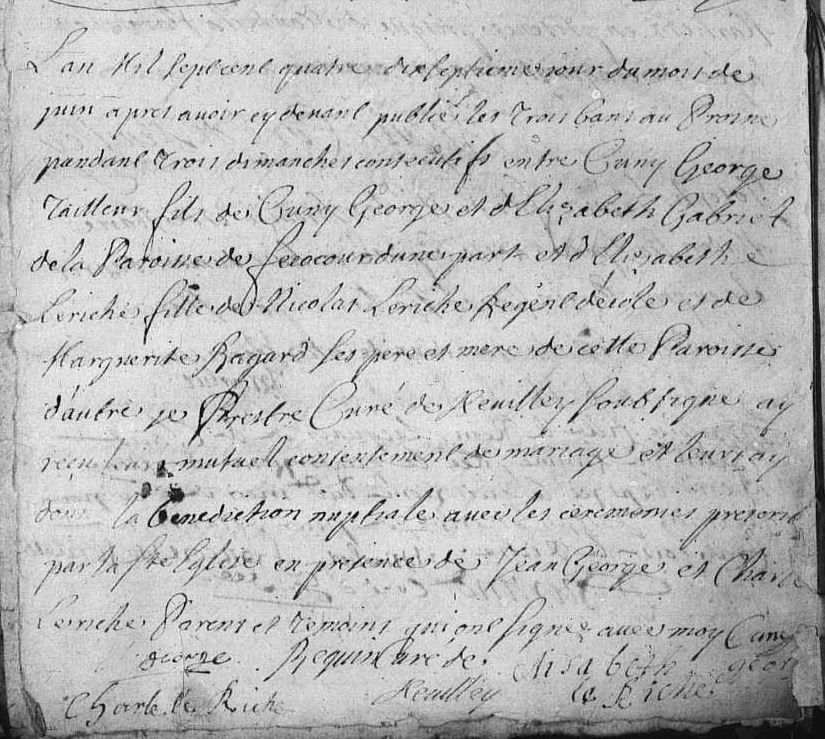 L'an Mil sept cent quatre dixseptieme jour du mois de
juin apres avoir cy devant publiés les trois bans au Prosne
pandant trois dimanches consecutifs entre Cuny George
Tailleur fils de Cuny George et d'Elizabeth Gabriel
de la Paroisse de Fecocour dune part et d'Elizabeth
Leriche fille de Nicolas Leriche Regent décole et de
Marguerite Ragard ses pere et mere de cette Paroisse
d'autre je Prestre Curé de Neuilley soubsigné ay
reçu leur mutuel consentement de mariage et leurs ay
donné la benediction nuptiale avec les ceremonies prescrit
par la Ste Eglise en presence de Jean George et Charle
Leriche Parens et temoins qui ont signez avec moy Cuny
george Requin curé de Elisabeth geor
Charle le Riche Neuilley le Riche